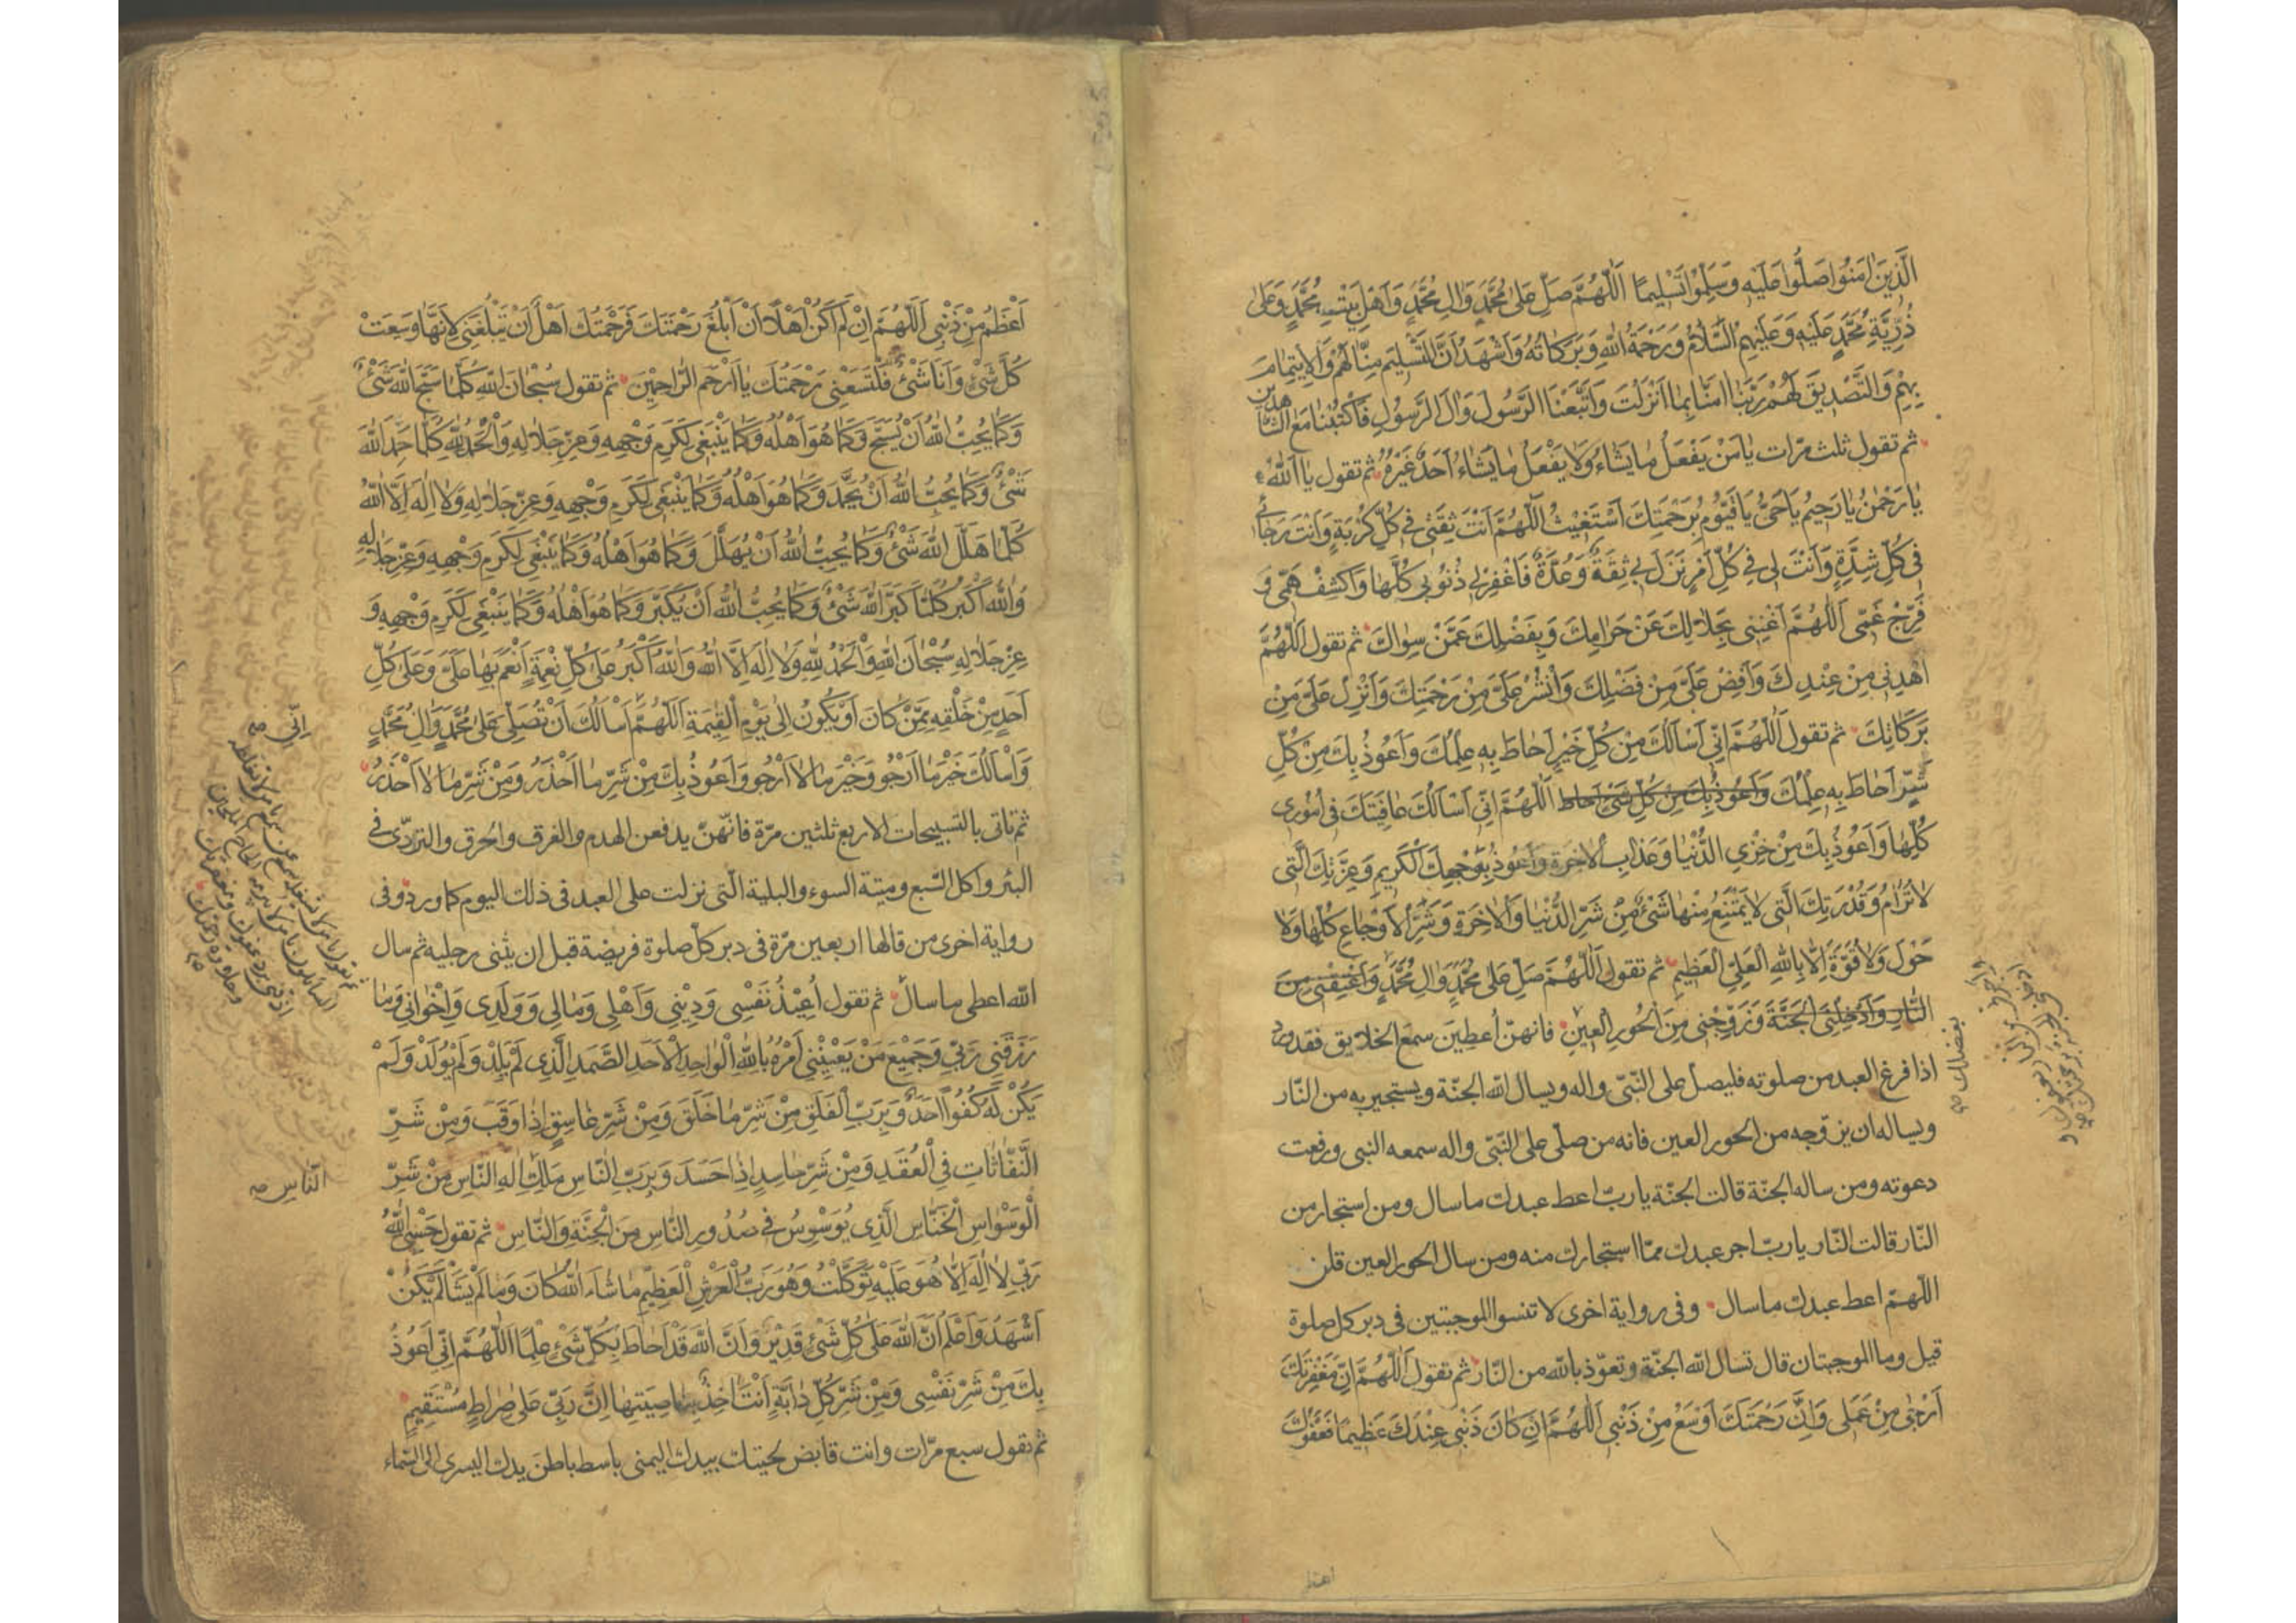 الَّذِينَ اٰمَنُوا صَلُّوا عَلَيْهِ وَسَلِّمُوا تَسْلِيمًا اَللّٰهُمَّ صَلِّ عَلىٰ مُحَمَّدٍ وَاٰلِ مُحَمَّدٍ وَاَهْلِ بَيْتِ مُحَمَّدٍ وَعَلىٰ
ذُرِّيَّةِ مُحَمَّدٍ عَلَيْهِ وَعَلَيْهِمُ السَّلَامُ وَرَحْمَةُ اللهِ وَبَرَكَاتُهُ وَاَشْهَدُ اَنَّ التَّسْلِيمَ مِنَّا لَهُمْ وَالْاِيتِمَامَ
بِهِمْ وَالتَّصْدِيقَ لَهُمْ رَبَّنَا اٰمَنَّا بِمَا اَنْزَلْتَ وَاتَّبَعْنَا الرَّسُولَ وَاٰلَ الرَّسُولِ فَاكْتُبْنَا مَعَ الشَّاهِدِينَ
ثم تقول ثلث مرّات يٰا مَنْ يَفْعَلُ مٰا يَشٰاءُ وَلٰا يَفْعَلُ مٰا يَشٰاءُ اَحَدٌ غَيْرُهُ ثم تقول يٰا اَللّٰهُ
يٰا رَحْمٰنُ يٰا رَحِيمُ يٰا حَيُّ يٰا قَيُّومُ بِرَحْمَتِكَ اَسْتَغِيثُ اَللّٰهُمَّ اَنْتَ ثِقَتِى فِى كُلِّ كُرْبَةٍ وَاَنْتَ رَجٰائِى
فِى كُلِّ شِدَّةٍ وَاَنْتَ لِى فِى كُلِّ اَمْرٍ نَزَلَ بِى ثِقَةٌ وَعُدَّةٌ فَاغْفِرْ لِى ذُنُوبِى كُلَّهٰا وَاكْشِفْ هَمِّى وَ
فَرِّجْ غَمِّى اَللّٰهُمَّ اَغْنِنِى بِحَلٰالِكَ عَنْ حَرٰامِكَ وَبِفَضْلِكَ عَمَّنْ سِوٰاكَ ثم تقول اَللّٰهُمَّ
اهْدِنِى مِنْ عِنْدِكَ وَاَفِضْ عَلَىَّ مِنْ فَضْلِكَ وَانْشُرْ عَلَىَّ مِنْ رَحْمَتِكَ وَاَنْزِلْ عَلَىَّ مِنْ
بَرَكٰاتِكَ ثم تقول اَللّٰهُمَّ اِنِّى اَسْاَلُكَ مِنْ كُلِّ خَيْرٍ اَحٰاطَ بِهِ عِلْمُكَ وَاَعُوذُ بِكَ مِنْ كُلِّ
شَرٍّ اَحٰاطَ بِهِ عِلْمُكَ وَاَعُوذُ بِكَ مِنْ كُلِّ شَىْءٍ اَحاط اَللّٰهُمَّ اِنِّى اَسْاَلُكَ عٰافِيَتَكَ فِى اُمُورِى
كُلِّهٰا وَاَعُوذُ بِكَ مِنْ خِزْىِ الدُّنْيٰا وَعَذٰابِ الْاٰخِرَةِ وَاَعُوذُ بِوَجْهِكَ الْكَرِيمِ وَعِزَّتِكَ الَّتِى
لٰا تُرٰامُ وَقُدْرَتِكَ الَّتِى لٰا يَمْتَنِعُ مِنْهٰا شَىْءٌ مِنْ شَرِّ الدُّنْيٰا وَالْاٰخِرَةِ وَشَرِّ الْاَوْجٰاعِ كُلِّهٰا وَلٰا
حَوْلَ وَلٰا قُوَّةَ اِلّٰا بِاللهِ الْعَلِىِّ الْعَظِيمِ ثم تقول اَللّٰهُمَّ صَلِّ عَلىٰ مُحَمَّدٍ وَاٰلِ مُحَمَّدٍ وَاَعْتِقْنِى مِنَ
النّٰارِ وَاَدْخِلْنِى الْجَنَّةَ وَزَوِّجْنِى مِنَ الْحُورِ الْعِينِ فانهنّ اُعطِينَ سمعَ الخلايق فقد ورد
اذا فرغ العبد من صلوته فليصل على النّبىّ واله ويسال الله الجنّة ويستجير به من النّار
ويساله ان يزوّجه من الحور العين فانه من صلّى على النّبىّ واله سمعه النبى ورفعت
دعوته ومن ساله الجنّة قالت الجنّة يا ربّ اعط عبدك ما سال ومن استجار من
النّار قالت النّار يا ربّ اجر عبدك ممّا استجارك منه ومن سال الحور العين قلن
اللّهمّ اعط عبدك ما سال وفى رواية اخرى لا تنسوا الموجبتين فى دبر كل صلوة
قيل وما الموجبتان قال تسال الله الجنّة وتعوّذ بالله من النّار ثم تقول اَللّٰهُمَّ اِنَّ مَغْفِرَتَكَ
اَرْجٰى مِنْ عَمَلِى وَاِنَّ رَحْمَتَكَ اَوْسَعُ مِنْ ذَنْبِى اَللّٰهُمَّ اِنْ كٰانَ ذَنْبِى عِنْدَكَ عَظِيمًا فَعَفْوُكَ
بفضلك صح
اَعْظَمُ مِنْ ذَنْبِى اَللّٰهُمَّ اِنْ لَمْ اَكُنْ اَهْلًا اَنْ اَبْلُغَ رَحْمَتَكَ فَرَحْمَتُكَ اَهْلٌ اَنْ تَبْلُغَنِى لِاَنَّهٰا وَسِعَتْ
كُلَّ شَىْءٍ وَاَنَا شَىْءٌ فَلْتَسَعْنِى رَحْمَتُكَ يٰا اَرْحَمَ الرّٰاحِمِينَ ثم تقول سُبْحٰانَ اللهِ كُلَّمٰا سَبَّحَ اللهَ شَىْءٌ
وَكَمٰا يُحِبُّ اللهُ اَنْ يُسَبَّحَ وَكَمٰا هُوَ اَهْلُهُ وَكَمٰا يَنْبَغِى لِكَرَمِ وَجْهِهِ وَعِزِّ جَلٰالِهِ وَالْحَمْدُ لِلّٰهِ كُلَّمٰا حَمِدَ اللهَ
شَىْءٌ وَكَمٰا يُحِبُّ اللهُ اَنْ يُحْمَدَ وَكَمٰا هُوَ اَهْلُهُ وَكَمٰا يَنْبَغِى لِكَرَمِ وَجْهِهِ وَعِزِّ جَلٰالِهِ وَلٰا اِلٰهَ اِلَّا اللهُ
كُلَّمٰا هَلَّلَ اللهَ شَىْءٌ وَكَمٰا يُحِبُّ اللهُ اَنْ يُهَلَّلَ وَكَمٰا هُوَ اَهْلُهُ وَكَمٰا يَنْبَغِى لِكَرَمِ وَجْهِهِ وَعِزِّ جَلٰالِهِ
وَاللهُ اَكْبَرُ كُلَّمٰا كَبَّرَ اللهَ شَىْءٌ وَكَمٰا يُحِبُّ اللهُ اَنْ يُكَبَّرَ وَكَمٰا هُوَ اَهْلُهُ وَكَمٰا يَنْبَغِى لِكَرَمِ وَجْهِهِ وَ
عِزِّ جَلٰالِهِ سُبْحٰانَ اللهِ وَالْحَمْدُ لِلّٰهِ وَلٰا اِلٰهَ اِلَّا اللهُ وَاللهُ اَكْبَرُ عَلىٰ كُلِّ نِعْمَةٍ اَنْعَمَ بِهٰا عَلَىَّ وَعَلىٰ كُلِّ
اَحَدٍ مِنْ خَلْقِهِ مِمَّنْ كٰانَ اَوْ يَكُونُ اِلىٰ يَوْمِ الْقِيٰمَةِ اَللّٰهُمَّ اَسْاَلُكَ اَنْ تُصَلِّىَ عَلىٰ مُحَمَّدٍ وَاٰلِ مُحَمَّدٍ
وَاَسْاَلُكَ خَيْرَ مٰا اَرْجُو وَخَيْرَ مٰا لٰا اَرْجُو وَاَعُوذُ بِكَ مِنْ شَرِّ مٰا اَحْذَرُ وَمِنْ شَرِّ مٰا لٰا اَحْذَرُ
ثم تاتى بالتسبيحات الاربع ثلثين مرّة فانهنّ يدفعن الهدم والغرق والحرق والتردّى فى
البئر واكل السّبع وميتة السوء والبلية الّتى نزلت على العبد فى ذلك اليوم كما ورد وفى
رواية اخرى من قالها اربعين مرّة فى دبر كلّ صلوة فريضة قبل ان يثنى رجليه ثم سال
الله اعطى ما سال ثم تقول اُعِيذُ نَفْسِى وَدِينِى وَاَهْلِى وَمٰالِى وَوَلَدِى وَاِخْوٰانِى وَمٰا
رَزَقَنِى رَبِّى وَجَمِيعَ مَنْ يَعْنِينِى اَمْرُهُ بِاللهِ الْوٰاحِدِ الْاَحَدِ الصَّمَدِ الَّذِى لَمْ يَلِدْ وَلَمْ يُولَدْ وَلَمْ
يَكُنْ لَهُ كُفُوًا اَحَدٌ وَبِرَبِّ الْفَلَقِ مِنْ شَرِّ مٰا خَلَقَ وَمِنْ شَرِّ غٰاسِقٍ اِذٰا وَقَبَ وَمِنْ شَرِّ
النَّفّٰاثٰاتِ فِى الْعُقَدِ وَمِنْ شَرِّ حٰاسِدٍ اِذٰا حَسَدَ وَبِرَبِّ النّٰاسِ مَلِكِ اِلٰهِ النّٰاسِ مِنْ شَرِّ
الْوَسْوٰاسِ الْخَنّٰاسِ الَّذِى يُوَسْوِسُ فِى صُدُورِ النّٰاسِ مِنَ الْجِنَّةِ وَالنّٰاسِ ثم تقول حَسْبِىَ اللهُ
رَبِّى لٰا اِلٰهَ اِلّٰا هُوَ عَلَيْهِ تَوَكَّلْتُ وَهُوَ رَبُّ الْعَرْشِ الْعَظِيمِ مٰا شٰاءَ اللهُ كٰانَ وَمٰا لَمْ يَشَأْ لَمْ يَكُنْ
اَشْهَدُ وَاَعْلَمُ اَنَّ اللهَ عَلىٰ كُلِّ شَىْءٍ قَدِيرٌ وَاَنَّ اللهَ قَدْ اَحٰاطَ بِكُلِّ شَىْءٍ عِلْمًا اَللّٰهُمَّ اِنِّى اَعُوذُ
بِكَ مِنْ شَرِّ نَفْسِى وَمِنْ شَرِّ كُلِّ دٰابَّةٍ اَنْتَ اٰخِذٌ بِنٰاصِيَتِهٰا اِنَّ رَبِّى عَلىٰ صِرٰاطٍ مُسْتَقِيمٍ
ثم تقول سبع مرّات وانت قابض لحيتك بيدك اليمنى باسط باطن يدك اليسرى الى السّماء
اِنّى صح
ثم تقول يا من لا يشغله سمع عن سمع يا من لا يغلطه
السائلون يا من لا يبرمه الحاح الملحين
اذقنى برد عفوك ومغفرتك
وحلاوة رحمتك صح
النّاسِ صح